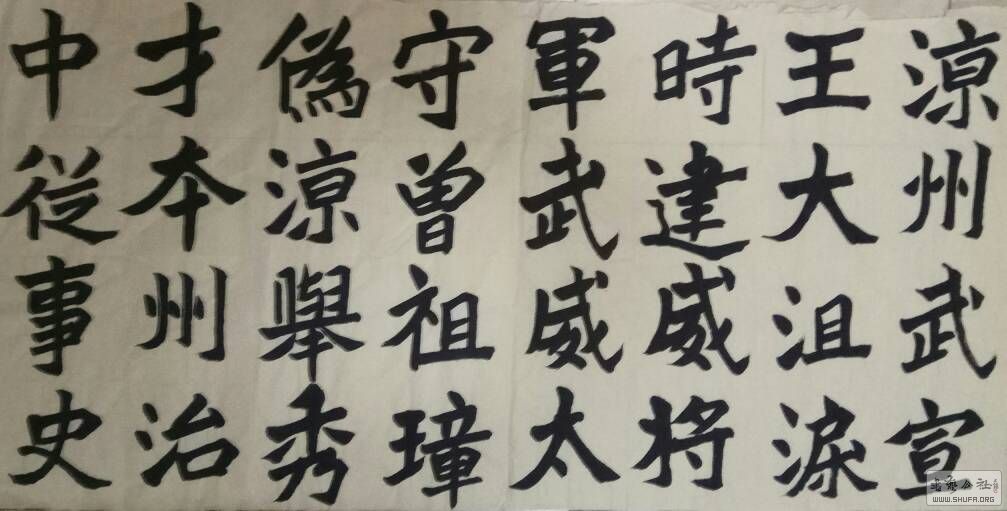 涼州武宣
王大沮渠
時建威將
軍武威太
守曾祖璋
偽涼舉秀
才本州治
中從事史
WWW.SHUFA.ORG